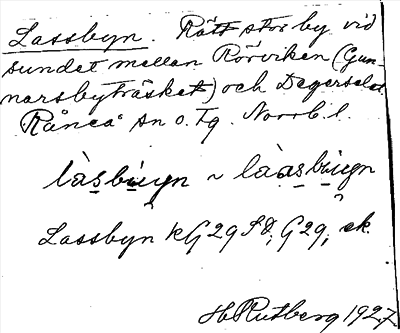 Lassbyn. Rätt stor by vid
sundet mellan Rörviken (Gun-
narsbyträsket) och Degerselet
Råneå sn o. tg. Norrb. l.
làsbùyn ~ làasbùygn
Lassbyn kG29SD; G29; ek.
H Rutberg 1927